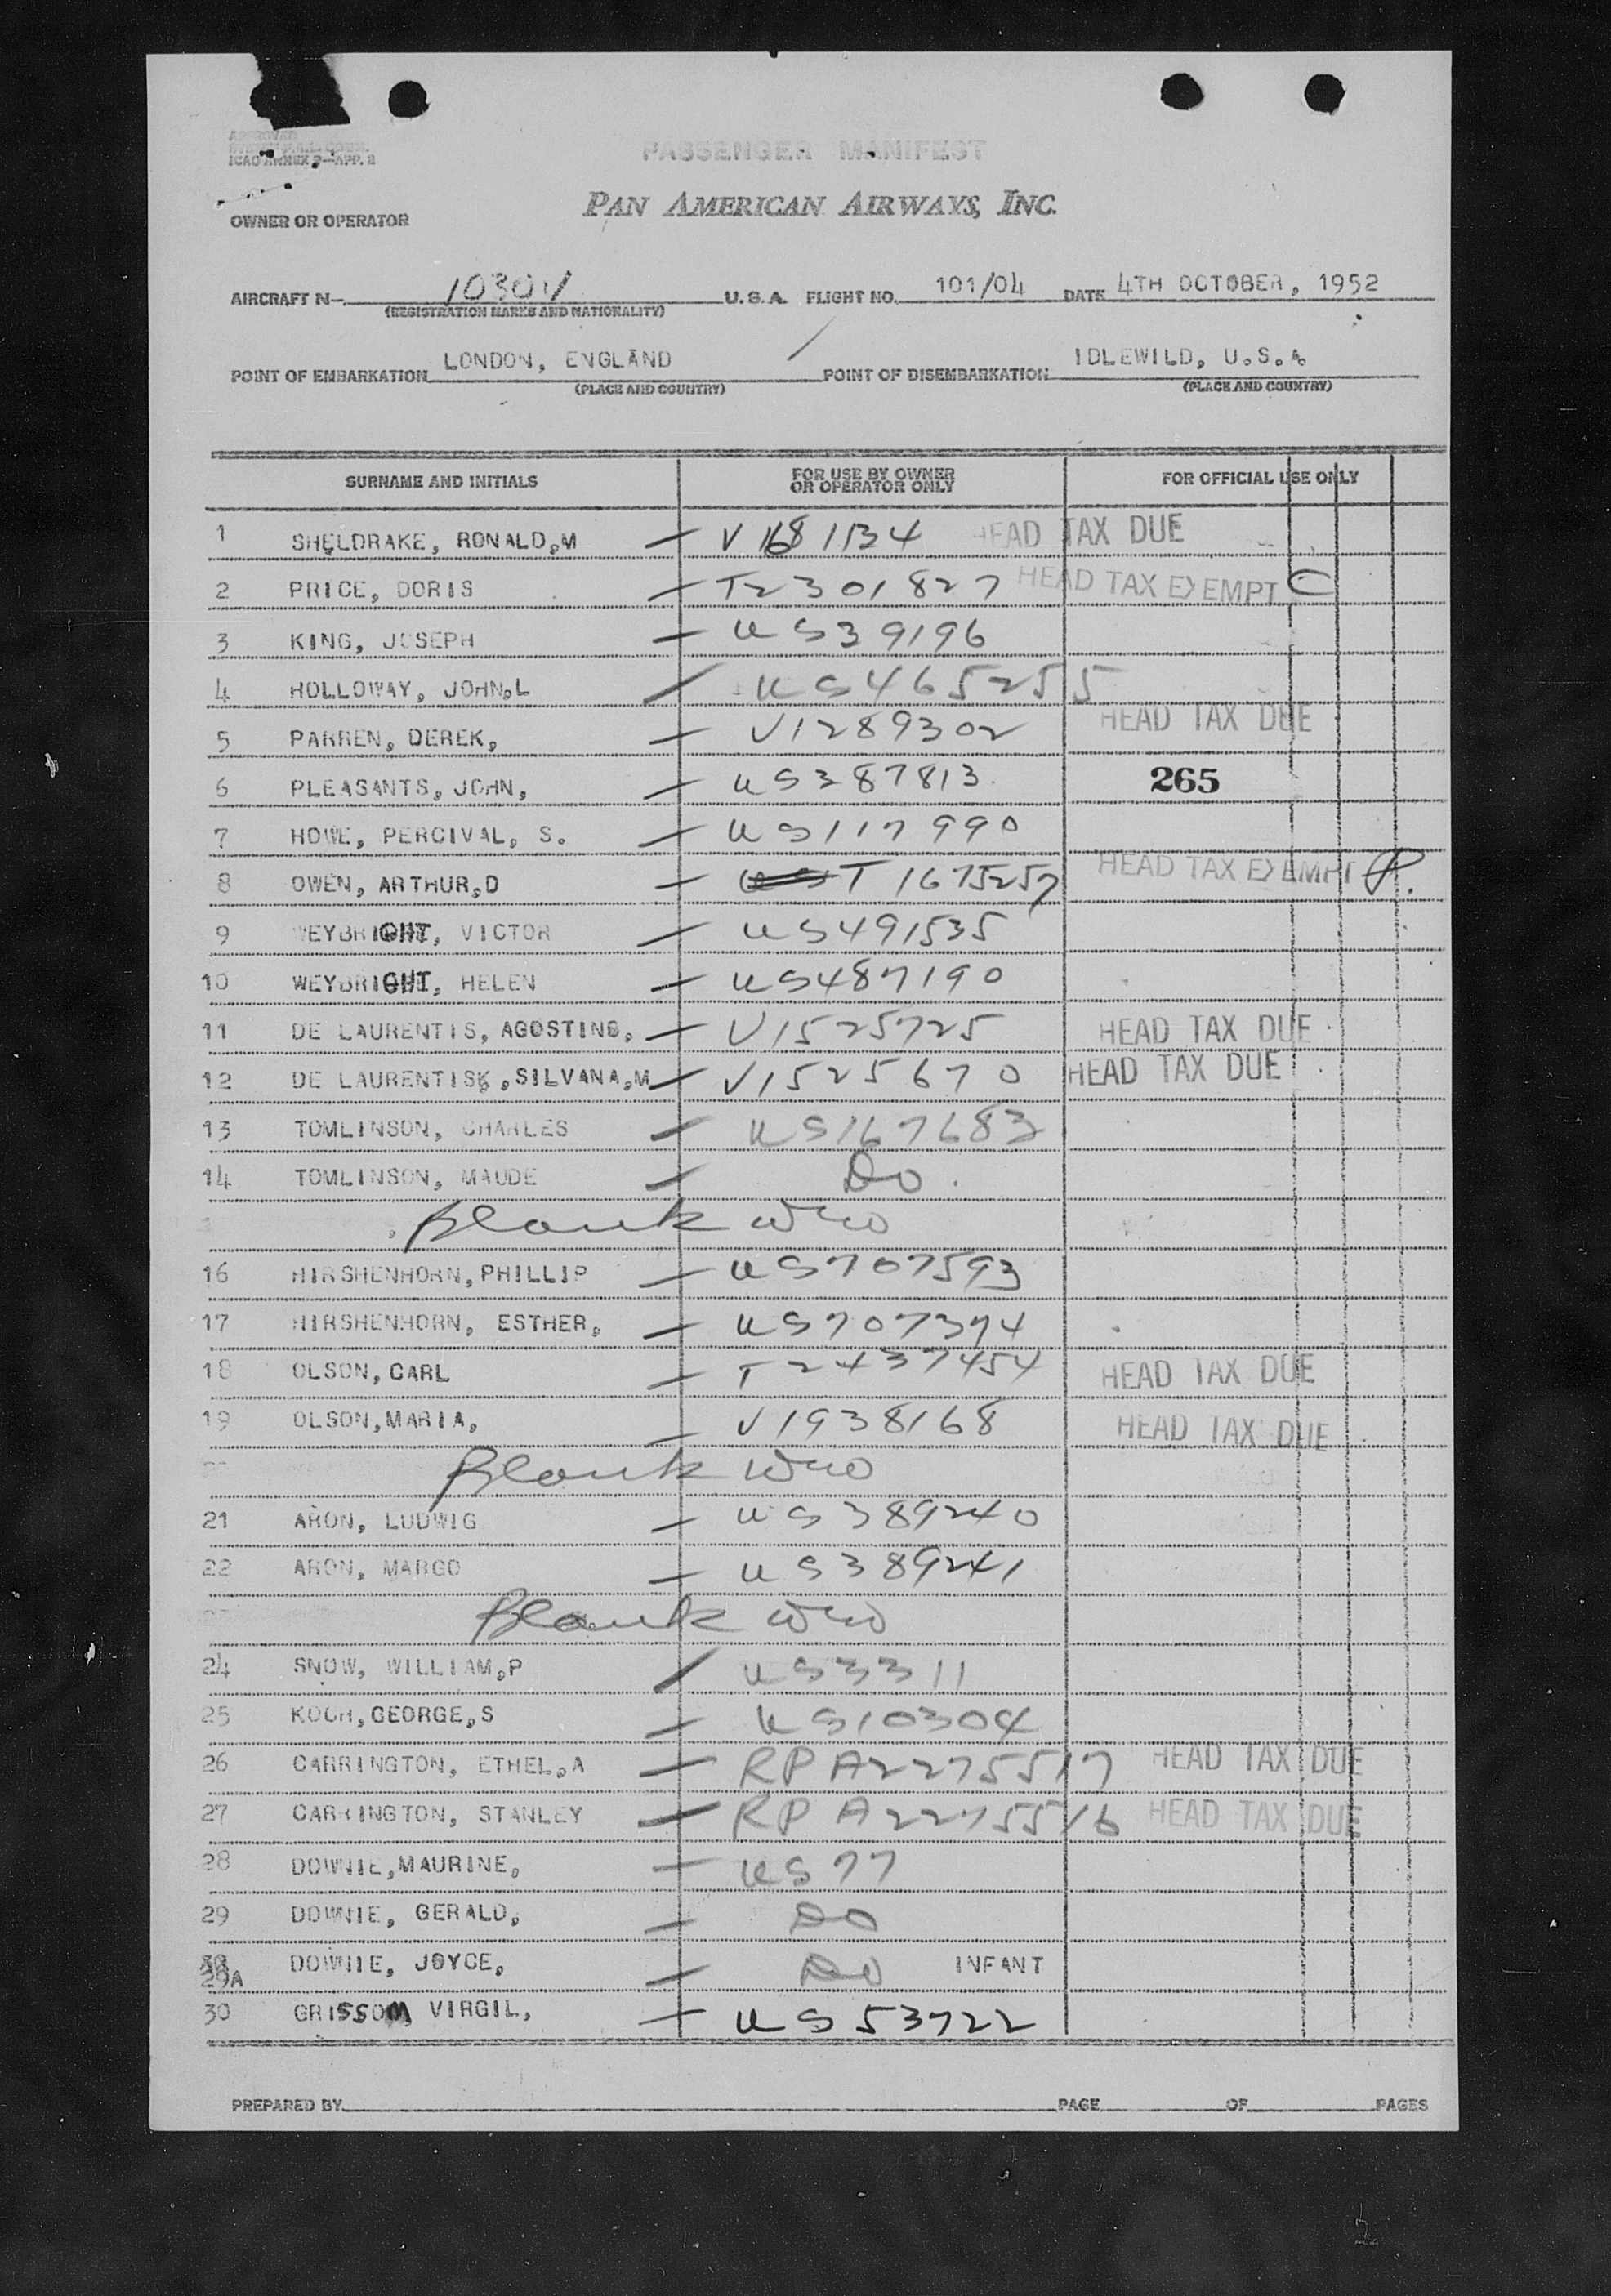 ICAO ANNEX 9—APP. 2
PASSENGER MANIFEST
PAN AMERICAN AIRWAYS, INC.
OWNER OR OPERATOR
AIRCRAFT N— 1030V U.S.A. FLIGHT NO. 101/04 DATE 4TH OCTOBER, 1952
(REGISTRATION MARKS AND NATIONALITY)
POINT OF EMBARKATION LONDON, ENGLAND POINT OF DISEMBARKATION IDLEWILD, U.S.A.
(PLACE AND COUNTRY) (PLACE AND COUNTRY)
SURNAME AND INITIALS FOR USE BY OWNER OR OPERATOR ONLY FOR OFFICIAL USE ONLY
1 SHELDRAKE, RONALD,M — V1681134 HEAD TAX DUE
2 PRICE, DORIS — T2301827 HEAD TAX EXEMPT C
3 KING, JOSEPH — US39196
4 HOLLOWAY, JOHN,L / US465255
5 PARREN, DEREK, — V1289302 HEAD TAX DUE
6 PLEASANTS, JOHN, — US387813 265
7 HOWE, PERCIVAL, S. — US117990
8 OWEN, ARTHUR,D — T1675257 HEAD TAX EXEMPT P.
9 WEYBRIGHT, VICTOR — US491535
10 WEYBRIGHT, HELEN — US487190
11 DE LAURENTIS, AGOSTINO, — V1525725 HEAD TAX DUE
12 DE LAURENTIS, SILVANA,M — V1525670 HEAD TAX DUE
13 TOMLINSON, CHARLES — US167683
14 TOMLINSON, MAUDE — Do.
Blank
16 HIRSHENHORN, PHILLIP — US707593
17 HIRSHENHORN, ESTHER, — US707374
18 OLSON, CARL — T2437454 HEAD TAX DUE
19 OLSON, MARIA, — V1938168 HEAD TAX DUE
Blank
21 ARON, LUDWIG — US389240
22 ARON, MARGO — US389241
Blank
24 SNOW, WILLIAM,P / US3311
25 KOCH, GEORGE,S — US10304
26 CARRINGTON, ETHEL,A — RP A2275517 HEAD TAX DUE
27 CARRINGTON, STANLEY — RP A2275516 HEAD TAX DUE
28 DOWNIE, MAURINE, — US77
29 DOWNIE, GERALD, — DO
29A DOWNIE, JOYCE, — DO INFANT
30 GRISSOM, VIRGIL, — US53722
PREPARED BY PAGE OF PAGES